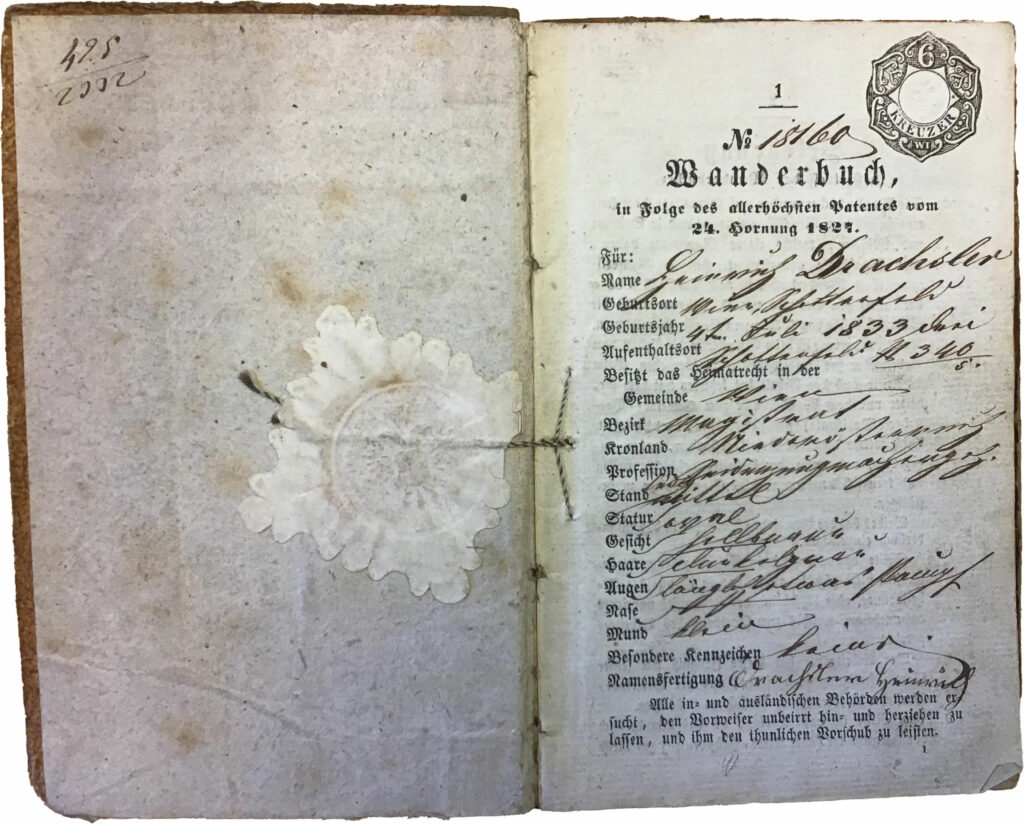 495
2002
6
KREUZER
WI
1
No 18160
Wanderbuch,
in Folge des allerhöchsten Patentes vom
24. Hornung 1827.
Für:
Name Heinrich Drachsler
Geburtsort Wien, Schottenfeld
Geburtsjahr 4ten Juli 1833 drei
Aufenthaltsort Schottenfeld N 340
Besitzt das Heimatrecht in der
Gemeinde Wien
Bezirk Magistrat
Kronland Niederösterreich
Profession Seidenzeugmacherges.
Stand ledig
Statur mittel
Gesicht oval
Haare hellbraun
Augen dunkelgrau
Nase längl. etwas
Mund klein
Besondere Kennzeichen keine
Namensfertigung Drachsler Heinrich
Alle in- und ausländischen Behörden werden er-
sucht, den Vorweiser unbeirrt hin- und herziehen zu
lassen, und ihm den thunlichen Vorschub zu leisten.
1